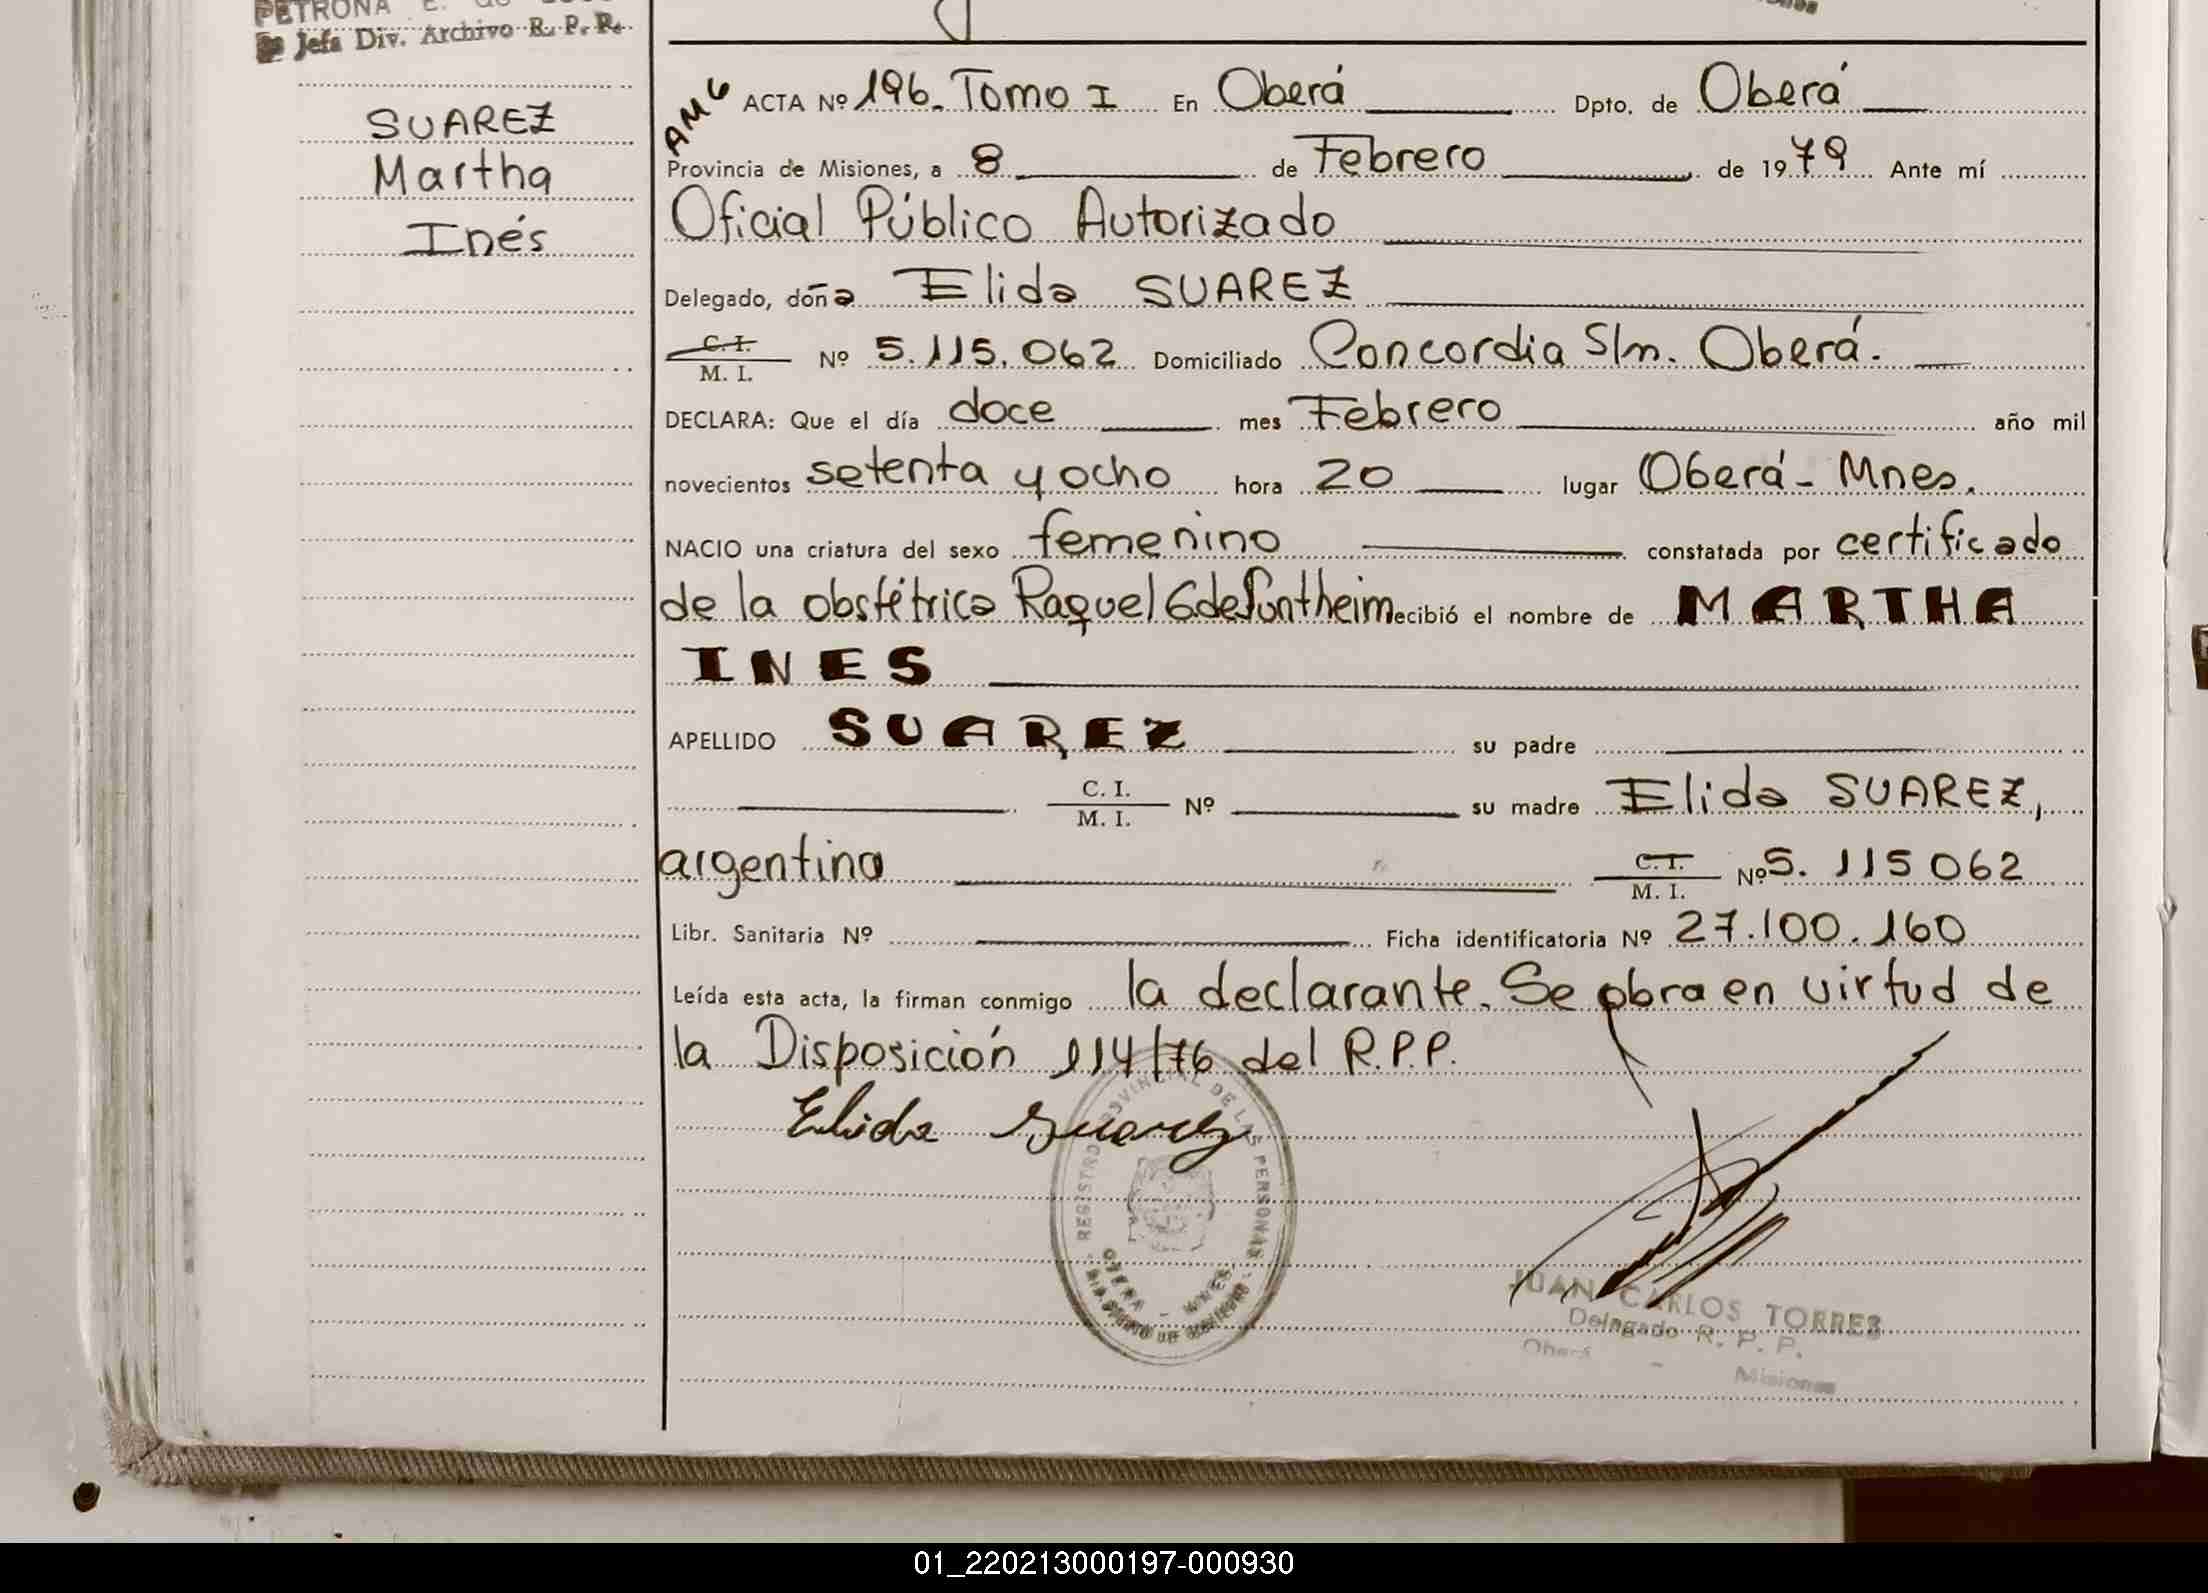 PETRONA E. de
Jefa Div. Archivo R. P. P.
SUAREZ
Martha
Inés
AMG
ACTA Nº 196. Tomo I En Oberá Dpto. de Oberá
Provincia de Misiones, a 8 de Febrero de 1979 Ante mí
Oficial Público Autorizado
Delegado, doña Elida SUAREZ
C. I. / M. I. Nº 5.115.062 Domiciliado Concordia S/n. Oberá.
DECLARA: Que el día doce mes Febrero año mil
novecientos setenta y ocho hora 20 lugar Oberá - Mnes.
NACIO una criatura del sexo femenino constatada por certificado
de la obstétrica Raquel G de Suntheim ecibió el nombre de MARTHA
INES
APELLIDO SUAREZ su padre
C. I. / M. I. Nº su madre Elida SUAREZ,
argentina C. I. / M. I. Nº 5. 115 062
Libr. Sanitaria Nº Ficha identificatoria Nº 27.100.160
Leída esta acta, la firman conmigo la declarante. Se obra en virtud de
la Disposición 114/76 del R.P.P.
Elida Suarez
REGISTRO PROVINCIAL DE LAS PERSONAS
OBERA - MNES
JUAN CARLOS TORRES
Delegado R. P. P.
Oberá - Misiones
01_220213000197-000930